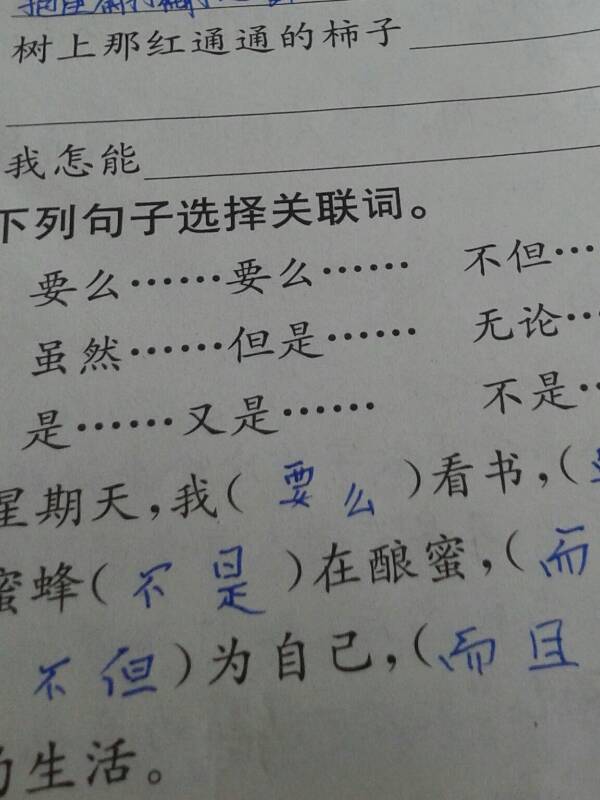 树上那红通通的柿子
我怎能
下列句子选择关联词。
要么……要么…… 不但…
虽然……但是…… 无论…
是……又是…… 不是…
星期天,我(要么)看书,(
蜜蜂(不是)在酿蜜,(而
不但)为自己,(而且
的生活。